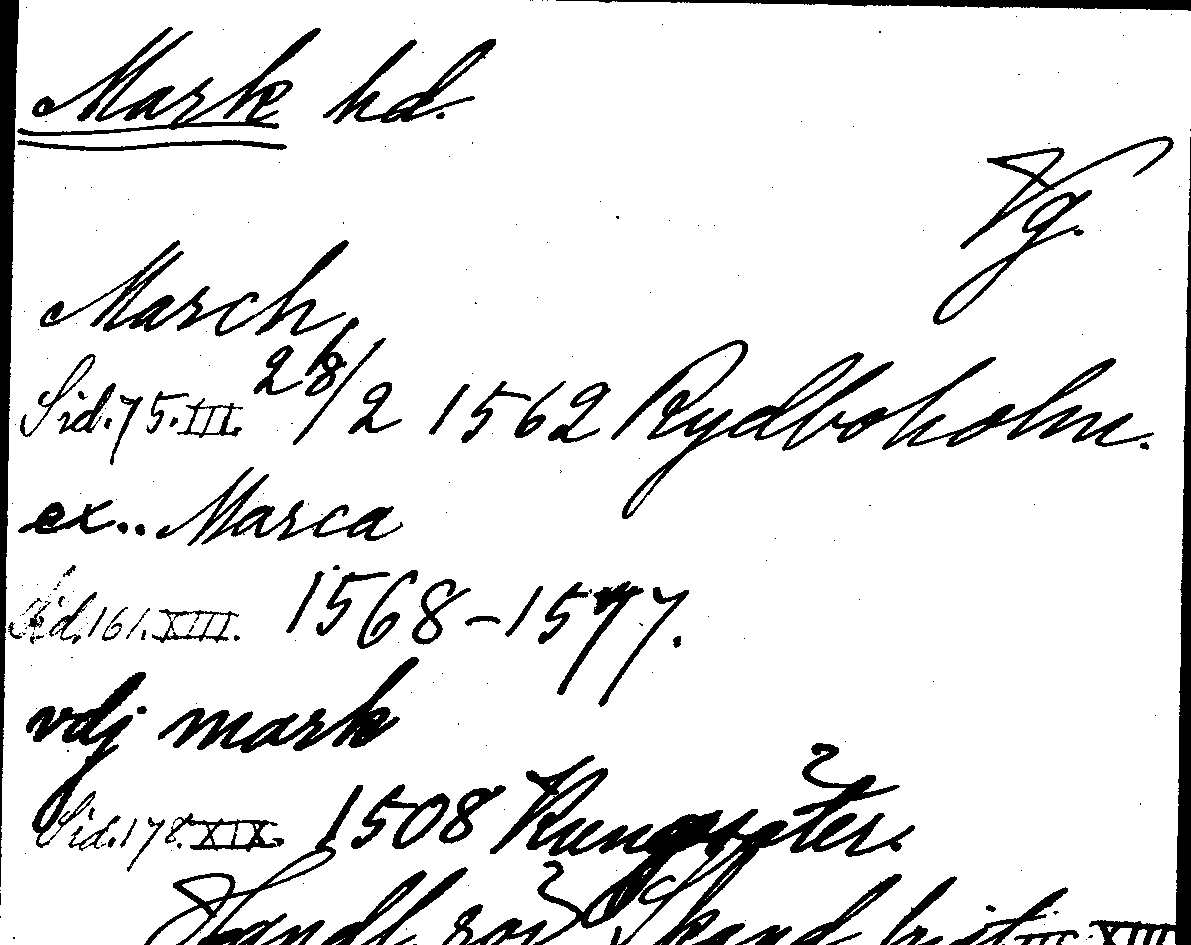 Mark hd.
Vg.
March,
Sid. 75. III. 28/2 1562 Rydboholm.
ex.. Marca
Sid. 161. XIII. 1568-1577.
vdj mark
Sid. 178. XIX. 1508 Kungsäter.
Handl. rör. Skand. hist. III. XIII